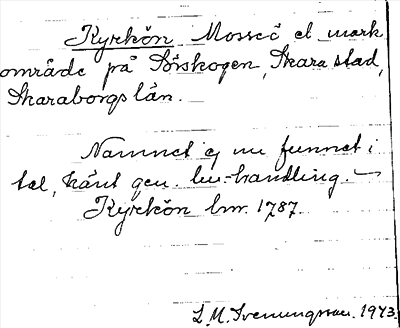 Kyrkön Mosseö el mark
område på Sörskogen, Skara stad,
Skaraborgs län.
Namnet ej nu funnet i
tal, känt gen. lm-handling. –
Kyrkön lmr. 1787.
L.M. Svenungsson. 1973.